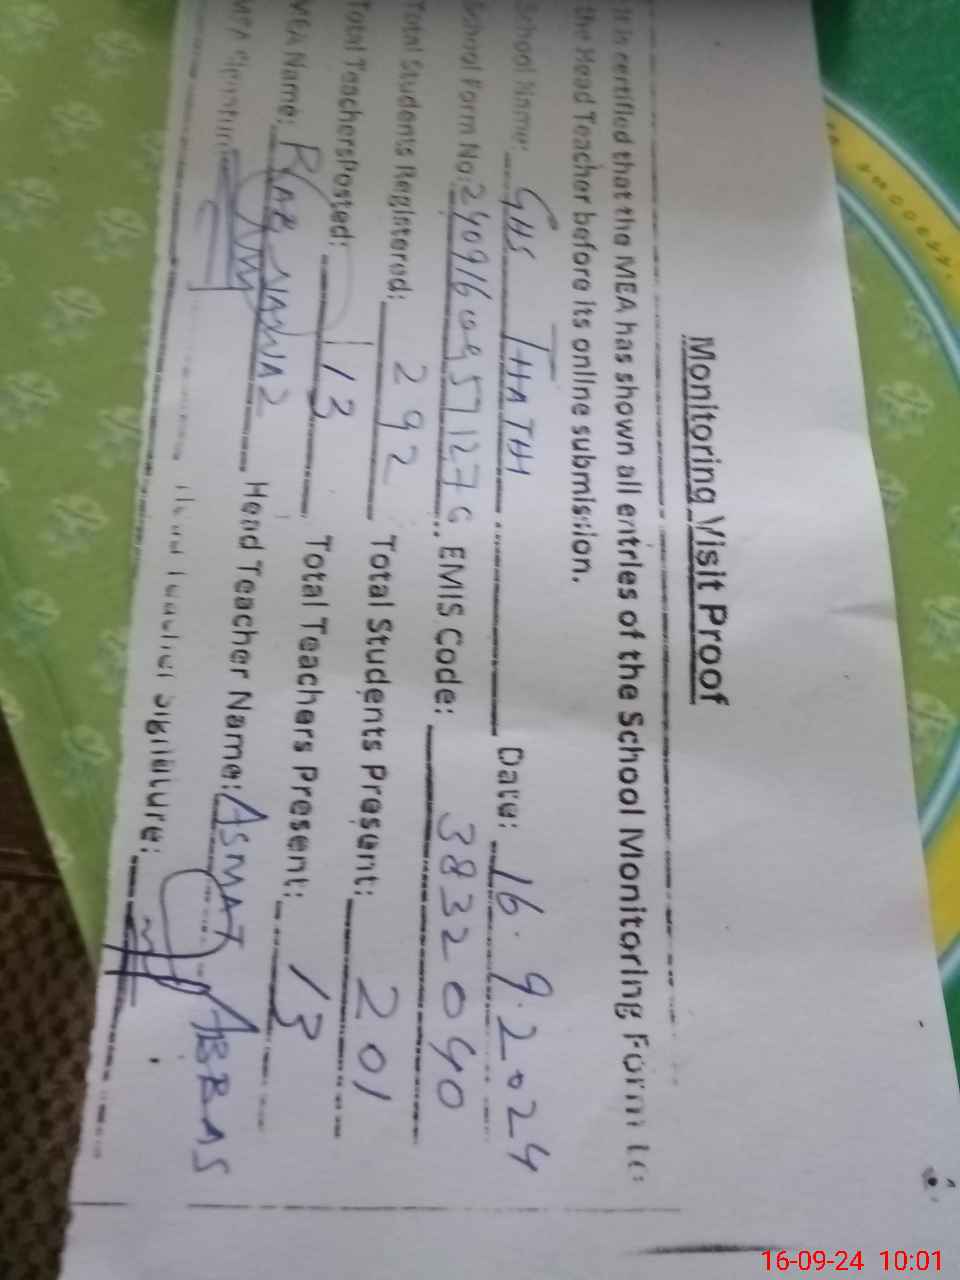 Monitoring Visit Proof
It is certified that the MEA has shown all entries of the School Monitoring Form to
the Head Teacher before its online submission.
School Name: GHS THATHI Date: 16.9.2024
School Form No: 24091609571276 EMIS Code: 38320040
Total Students Registered: 292 Total Students Present: 201
Total Teachers Posted: 13 Total Teachers Present: 13
MEA Name: RAB NAWAZ Head Teacher Name: ASMAT ABBAS
MEA Signature Head Teacher Signature:
16-09-24 10:01